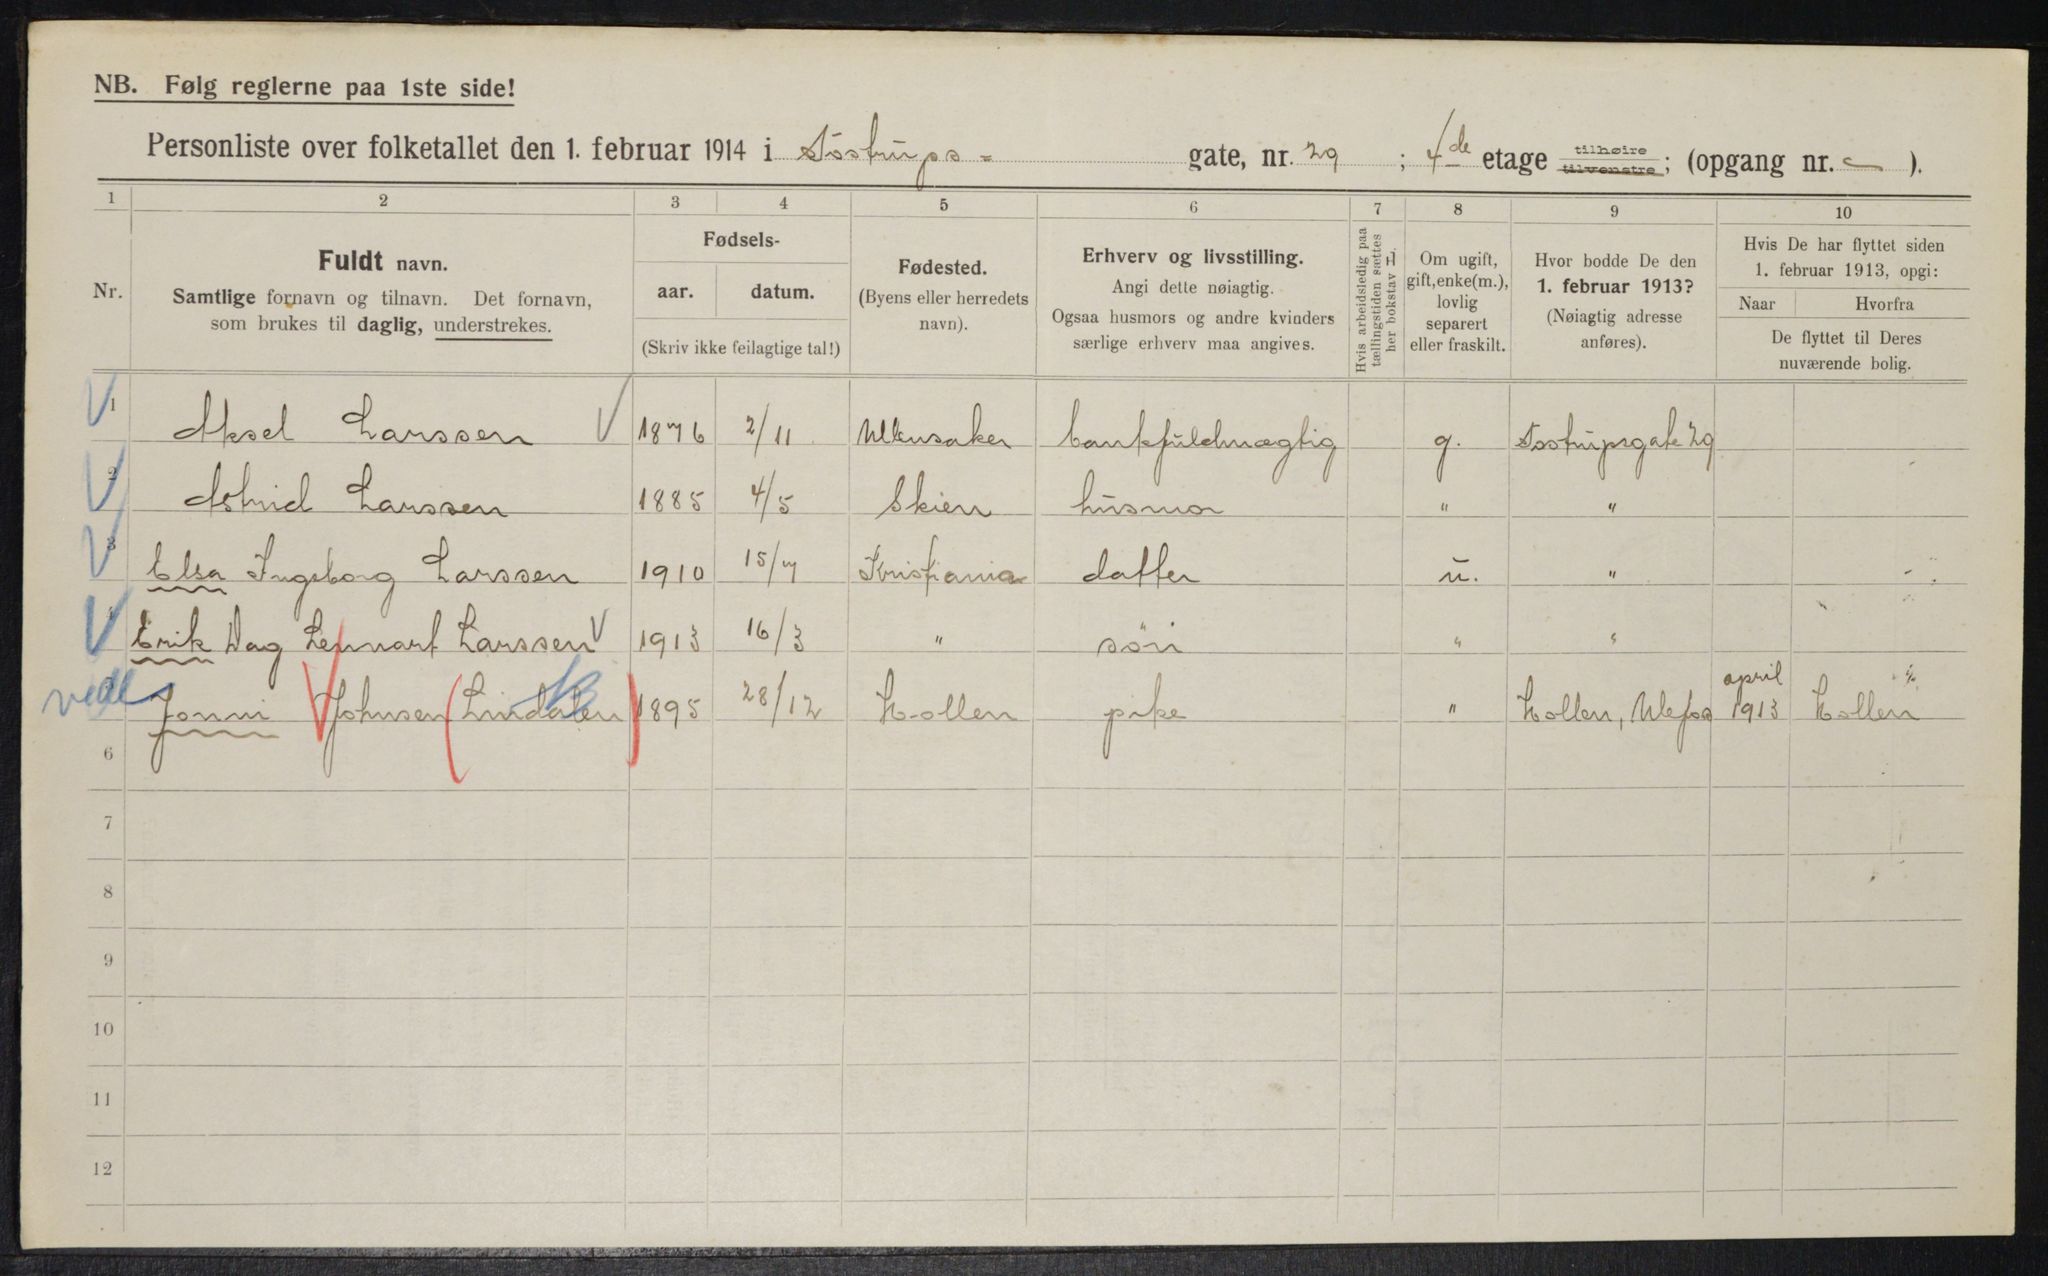 NB. Følg reglerne paa 1ste side!
Personliste over folketallet den 1. februar 1914 i Tostrups- gate, nr. 29 ; 4de etage tilhøire tilvenstre; (opgang nr. - ).
1 2 3 4 5 6 7 8 9 10
Nr.
Fuldt navn.
Samtlige fornavn og tilnavn. Det fornavn,
som brukes til daglig, understrekes.
Fødsels-
aar. datum.
(Skriv ikke feilagtige tal!)
Fødested.
(Byens eller herredets
navn).
Erhverv og livsstilling.
Angi dette nøiagtig.
Ogsaa husmors og andre kvinders
særlige erhverv maa angives.
Hvis arbeidsledig paa
tællingstiden sættes
her bokstav L.
Om ugift,
gift, enke(m.),
lovlig
separert
eller fraskilt.
Hvor bodde De den
1. februar 1913?
(Nøiagtig adresse
anføres).
Hvis De har flyttet siden
1. februar 1913, opgi:
Naar Hvorfra
De flyttet til Deres
nuværende bolig.
1 Aksel Larssen 1876 2/11 Ullensaker bankfuldmægtig g. Tostrupsgate 29
2 Astrid Larssen 1885 4/5 Skien husmor " "
3 Elsa Ingeborg Larssen 1910 15/7 Kristiania datter u. "
4 Erik Dag Lennart Larssen 1913 16/3 " søn " "
Jonni Johnsen (Lindalen) 1895 28/12 Hollen pike " Hollen, Ulefos april 1913 Hollen
6
7
8
9
10
11
12